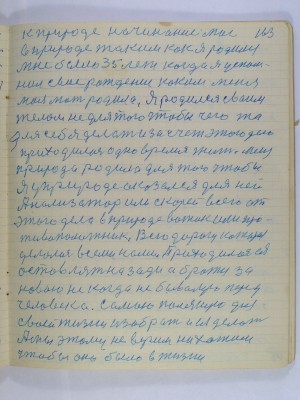 к природе начинание мое 163
в природе таким как я родился
мне было 35 лет когда я вспом-
нил свое рождении каким меня
моя мать родила, Я родился своим
телом не для того чтобы чего то
для себя делать и за счет этого
приходилось одно время жить меня
природа родила для того чтобы
я у природе оказался для ней
Анализатор или скорей всего от
этого дела в природе важаким про-
тивоположник, Всю дорогу которую
делалась всеми нами, Приходилось ей
оставлять назади а браться за
новою не когда не бывалую перед
человека. Самою полезную для
своей жизни избрать и ей делать
А мы этому не верим не хотим
чтобы оно было в жизни